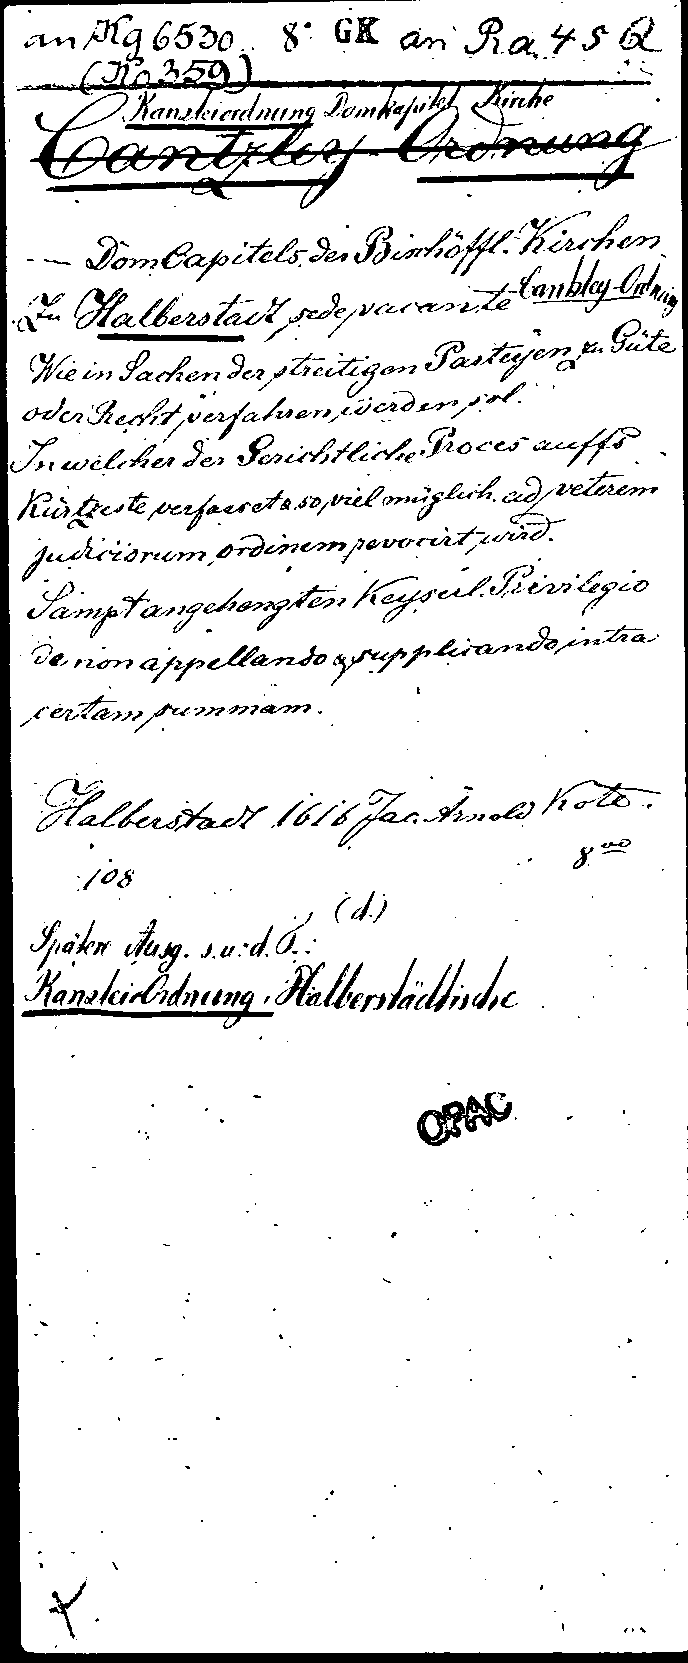 an Kg 6530 8° GK an Ra 45 Q
(Ko 359)
Kanzleiordnung Domkapitel Kirche
Cantzley-Ordnung
— DomCapitels der Bischöffl. Kirchen
Zu Halberstadt sede vacante Cantzley-Ordnung
Wie in Sachen der streitigen Parteyen zu Güte
oder Recht verfahren werden sol.
In welcher der Gerichtliche Proces auffs
Kürtzeste verfasset & so viel müglich ad veterem
judiciorum ordinem revocirt wird.
Sampt angehengten Keyserl. Privilegio
de non appellando & supplicando intra
certam summam.
Halberstadt 1616 Jac. Arnold Kote.
8vo
108
(d.)
Spätere Ausg. s. u. d. T.:
Kanzlei-Ordnung, Halberstädtische
OPAC